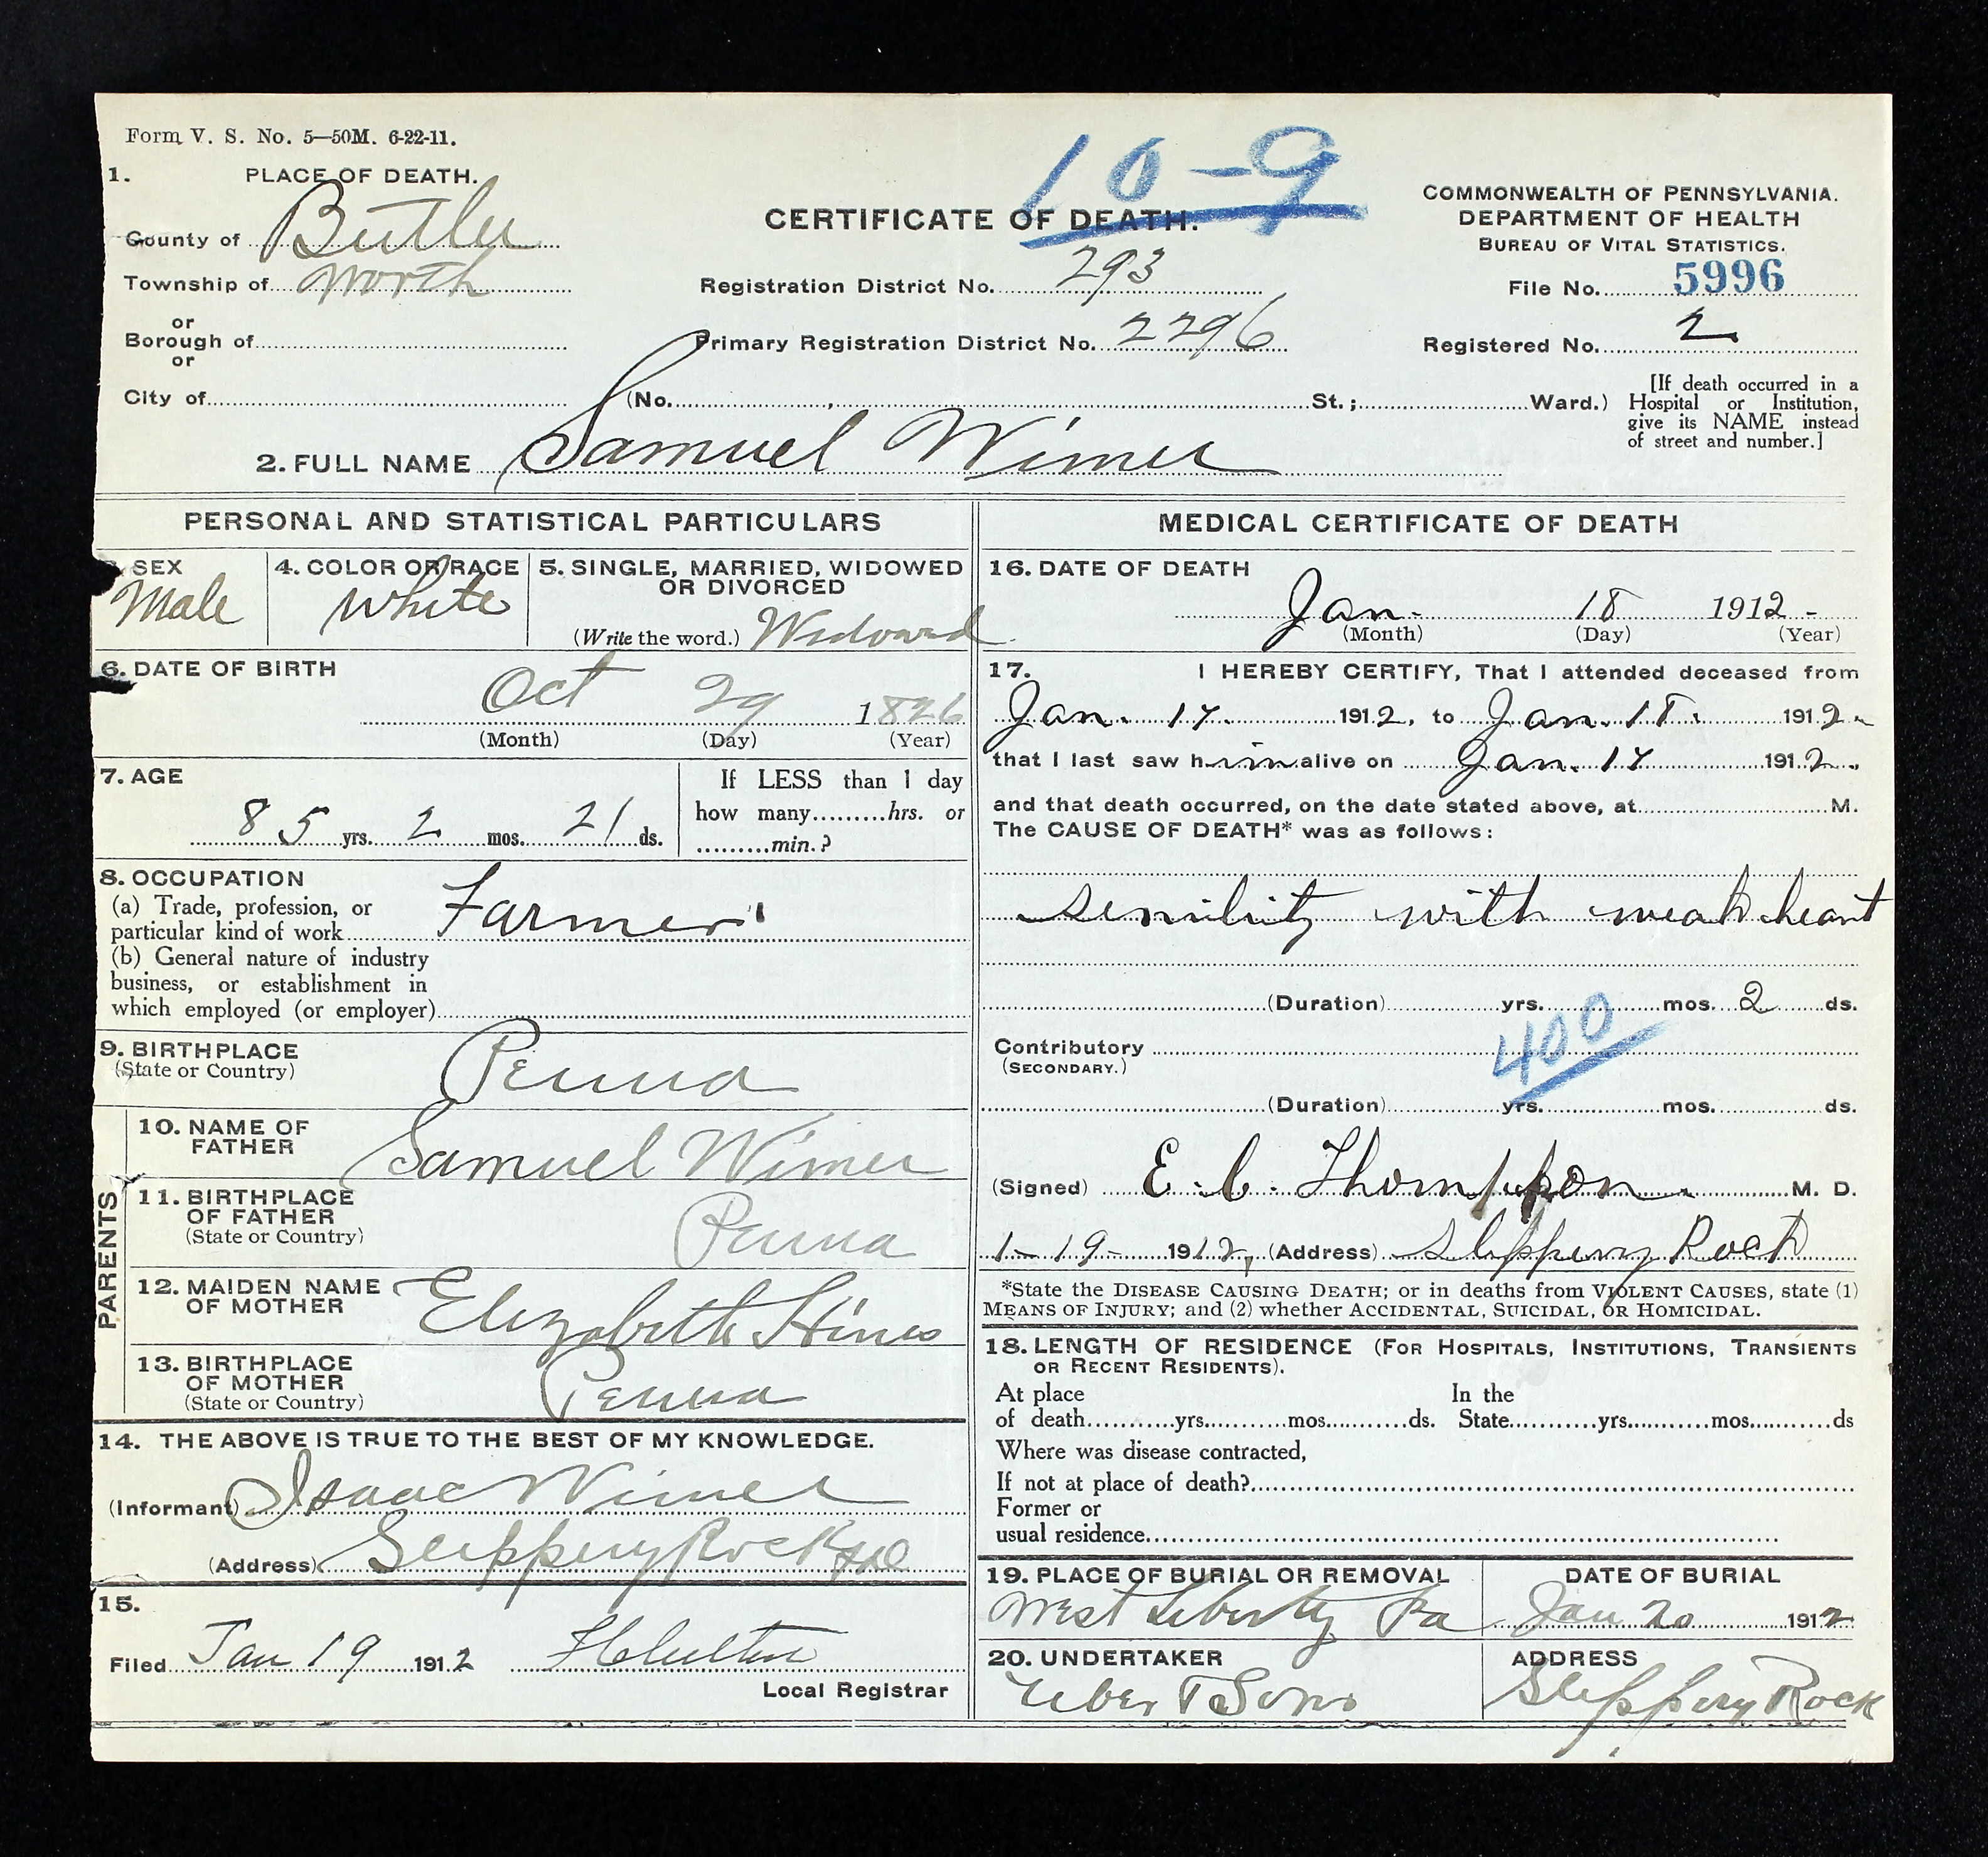 Form V. S. No. 5—50M. 6-22-11.
10-9
1. PLACE OF DEATH.
County of Butler
Township of Worth
or
Borough of
or
City of
CERTIFICATE OF DEATH.
Registration District No. 293
Primary Registration District No. 2296
(No. , St.; Ward.)
COMMONWEALTH OF PENNSYLVANIA.
DEPARTMENT OF HEALTH
BUREAU OF VITAL STATISTICS.
File No. 5996
Registered No. 2
[If death occurred in a
Hospital or Institution,
give its NAME instead
of street and number.]
2. FULL NAME Samuel Wimer
PERSONAL AND STATISTICAL PARTICULARS
SEX
Male
4. COLOR OR RACE
White
5. SINGLE, MARRIED, WIDOWED
OR DIVORCED
(Write the word.) Widoward
6. DATE OF BIRTH
Oct 29 1826
(Month) (Day) (Year)
7. AGE
85 yrs. 2 mos. 21 ds.
If LESS than 1 day
how many hrs. or
min.?
8. OCCUPATION
(a) Trade, profession, or
particular kind of work Farmer
(b) General nature of industry
business, or establishment in
which employed (or employer)
9. BIRTHPLACE
(State or Country)
Penna
PARENTS
10. NAME OF
FATHER
Samuel Wimer
11. BIRTHPLACE
OF FATHER
(State or Country)
Penna
12. MAIDEN NAME
OF MOTHER
Elizabeth Hines
13. BIRTHPLACE
OF MOTHER
(State or Country)
Penna
14. THE ABOVE IS TRUE TO THE BEST OF MY KNOWLEDGE.
(Informant) Isaac Wimer
(Address) Slippery Rock
15.
Filed Jan 19 1912
Local Registrar
MEDICAL CERTIFICATE OF DEATH
16. DATE OF DEATH
Jan. 18 1912
(Month) (Day) (Year)
17. I HEREBY CERTIFY, That I attended deceased from
Jan. 17. 1912, to Jan. 18. 1912
that I last saw him alive on Jan. 17 1912.
and that death occurred, on the date stated above, at M.
The CAUSE OF DEATH* was as follows:
senility with weak heart
(Duration) yrs. mos. 2 ds.
400
Contributory
(SECONDARY.)
(Duration) yrs. mos. ds.
(Signed) E. C. Thompson. M. D.
1-19- 1912, (Address) Slippery Rock
*State the DISEASE CAUSING DEATH; or in deaths from VIOLENT CAUSES, state (1)
MEANS OF INJURY; and (2) whether ACCIDENTAL, SUICIDAL, OR HOMICIDAL.
18. LENGTH OF RESIDENCE (FOR HOSPITALS, INSTITUTIONS, TRANSIENTS
OR RECENT RESIDENTS).
At place
of death yrs. mos. ds.
In the
State yrs. mos. ds
Where was disease contracted,
If not at place of death?
Former or
usual residence
19. PLACE OF BURIAL OR REMOVAL
West Liberty Pa
DATE OF BURIAL
Jan 20 1912
20. UNDERTAKER
Uber & Sons
ADDRESS
Slippery Rock